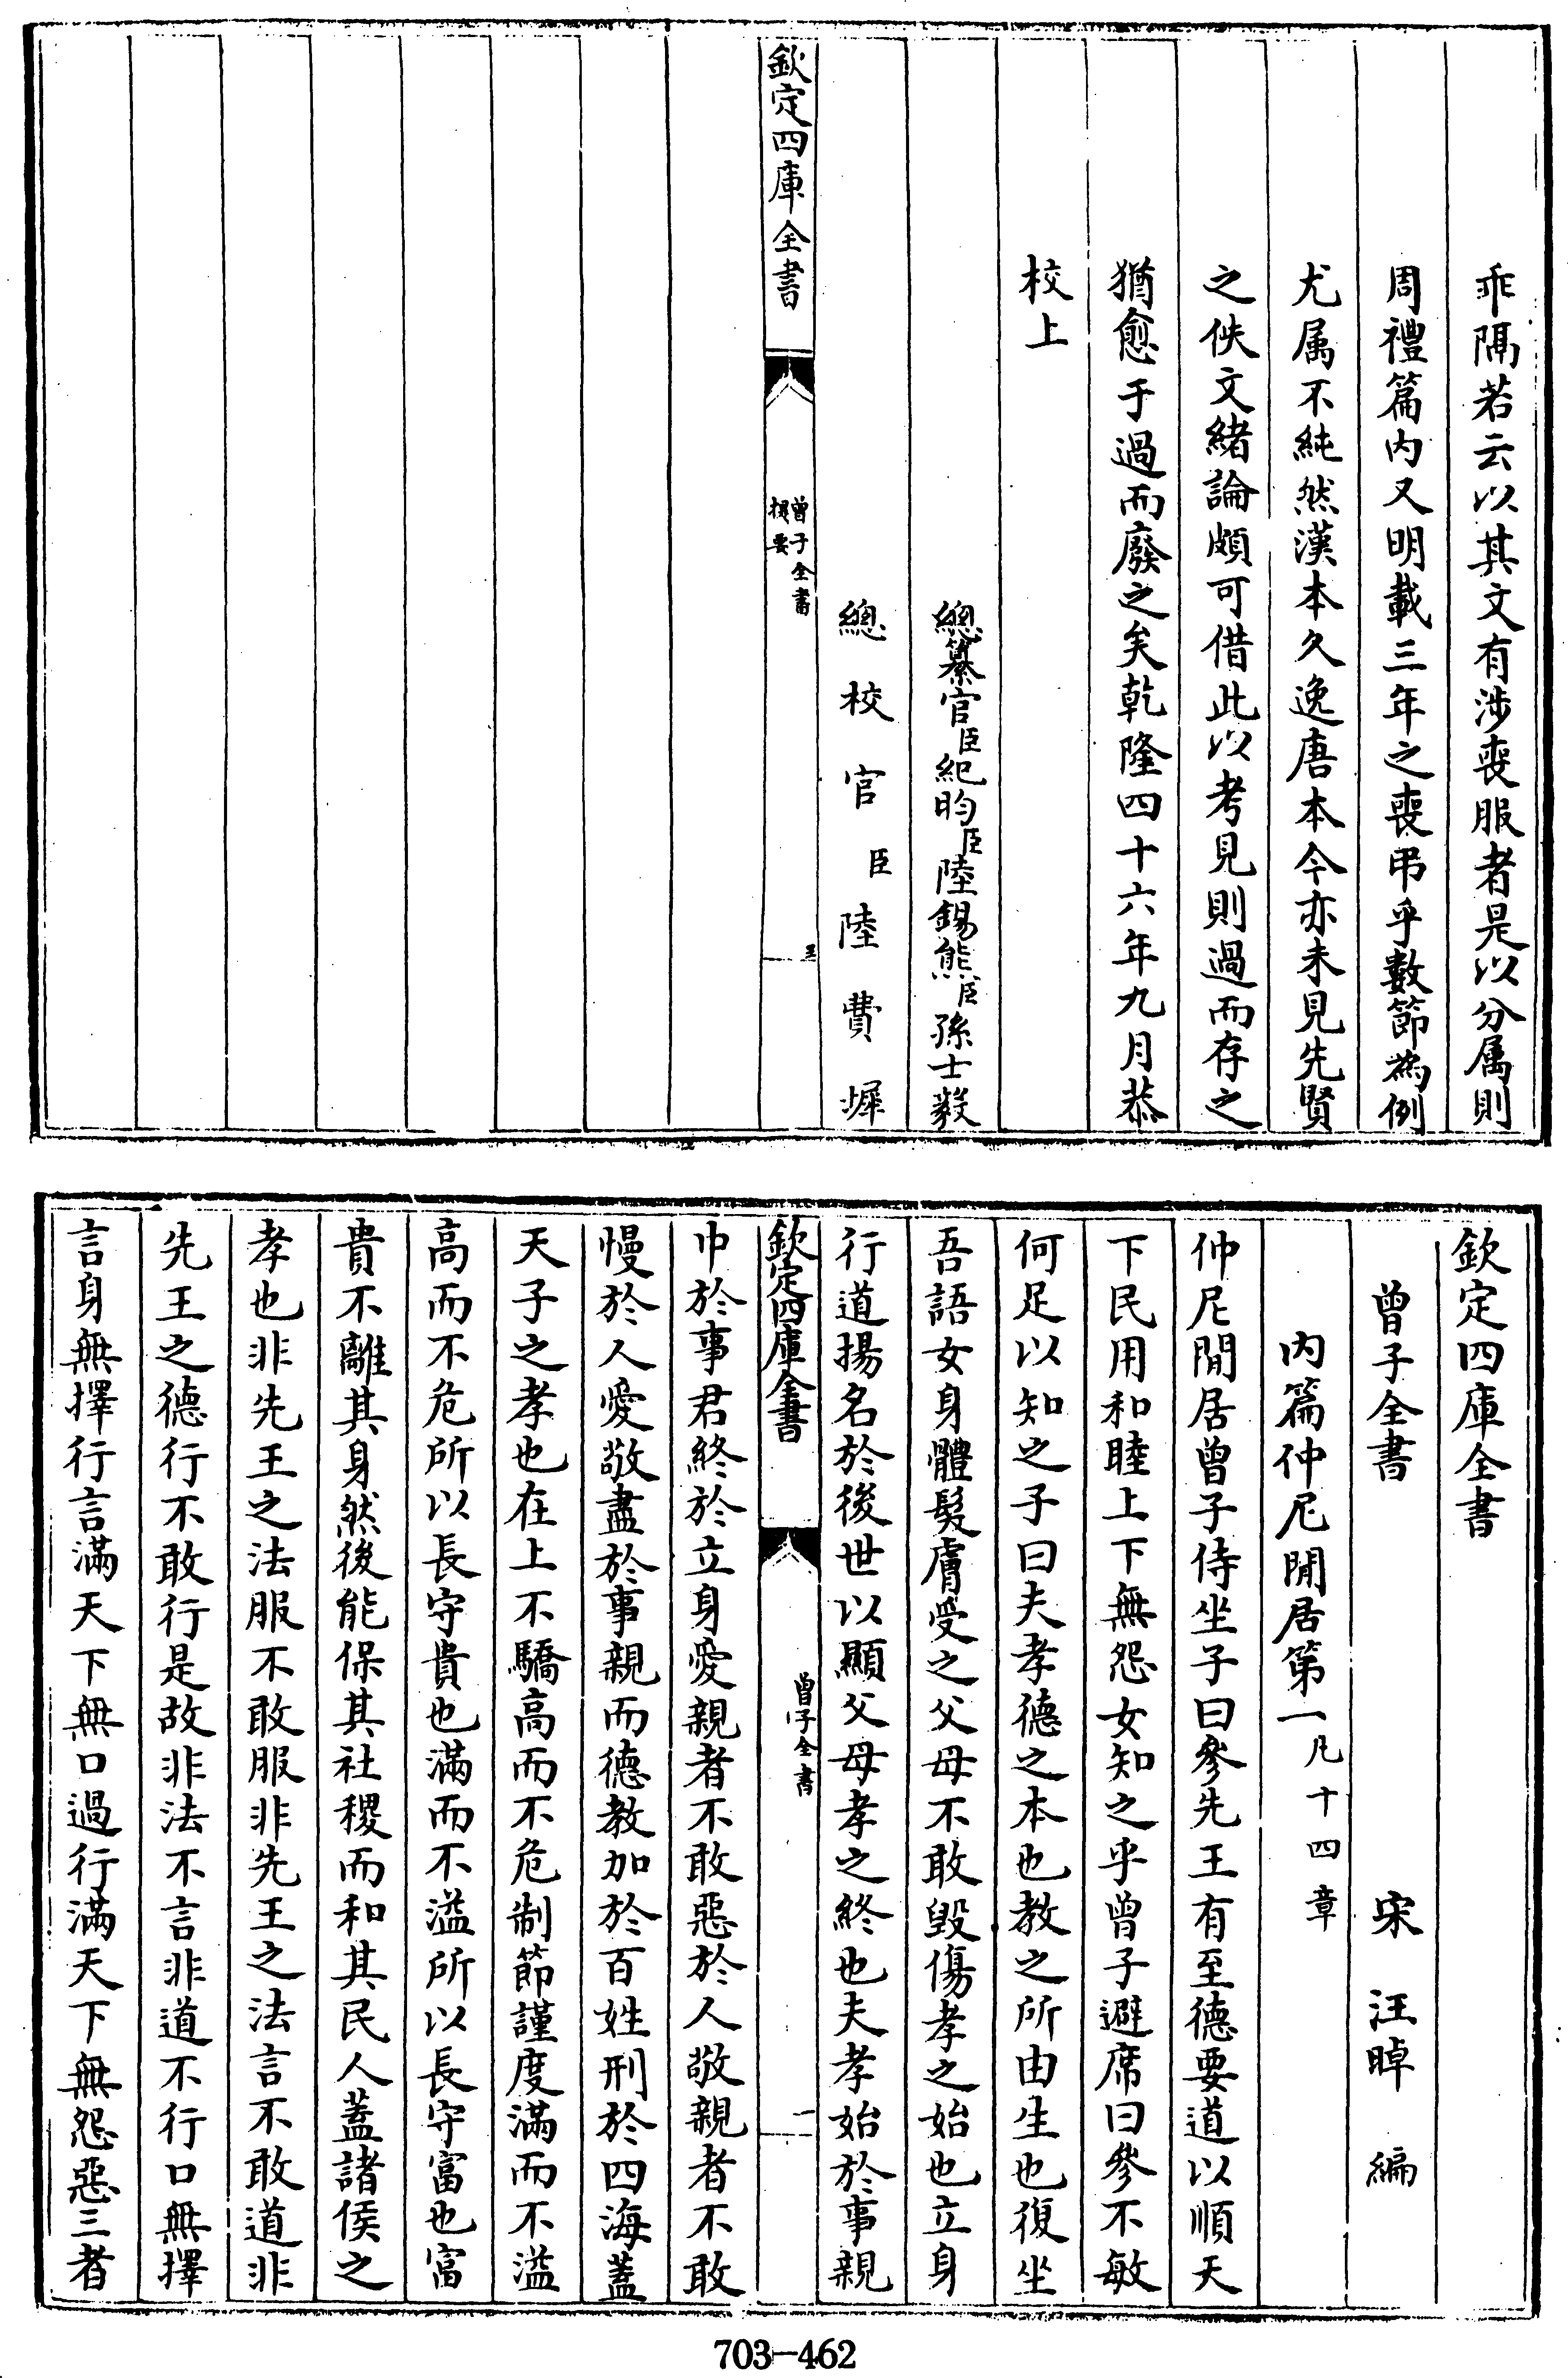 乖隔若云以其文有涉喪服者是以分属則
周禮篇内又明載三年之喪弔乎數節為例
尤属不純然漢本久逸唐本今亦未見先賢
之佚文緒論頗可借此以考見則過而存之
猶愈于過而廢之矣乾隆四十六年九月恭
校上
總纂官臣紀昀臣陸錫熊臣孫士毅
總校官臣陸費墀
欽定四庫全書
曾子全書
提要
三
欽定四庫全書
曾子全書
宋 汪晫 編
内篇仲尼閒居第一凡十四章
仲尼閒居曾子侍坐子曰參先王有至德要道以順天
下民用和睦上下無怨女知之乎曾子避席曰參不敏
何足以知之子曰夫孝德之本也教之所由生也復坐
吾語女身體髮膚受之父母不敢毀傷孝之始也立身
行道揚名於後世以顯父母孝之終也夫孝始於事親
欽定四庫全書
曾子全書
一
中於事君終於立身愛親者不敢惡於人敬親者不敢
慢於人愛敬盡於事親而德教加於百姓刑於四海蓋
天子之孝也在上不驕高而不危制節謹度滿而不溢
高而不危所以長守貴也滿而不溢所以長守富也富
貴不離其身然後能保其社稷而和其民人蓋諸侯之
孝也非先王之法服不敢服非先王之法言不敢道非
先王之德行不敢行是故非法不言非道不行口無擇
言身無擇行言滿天下無口過行滿天下無怨惡三者
703-462